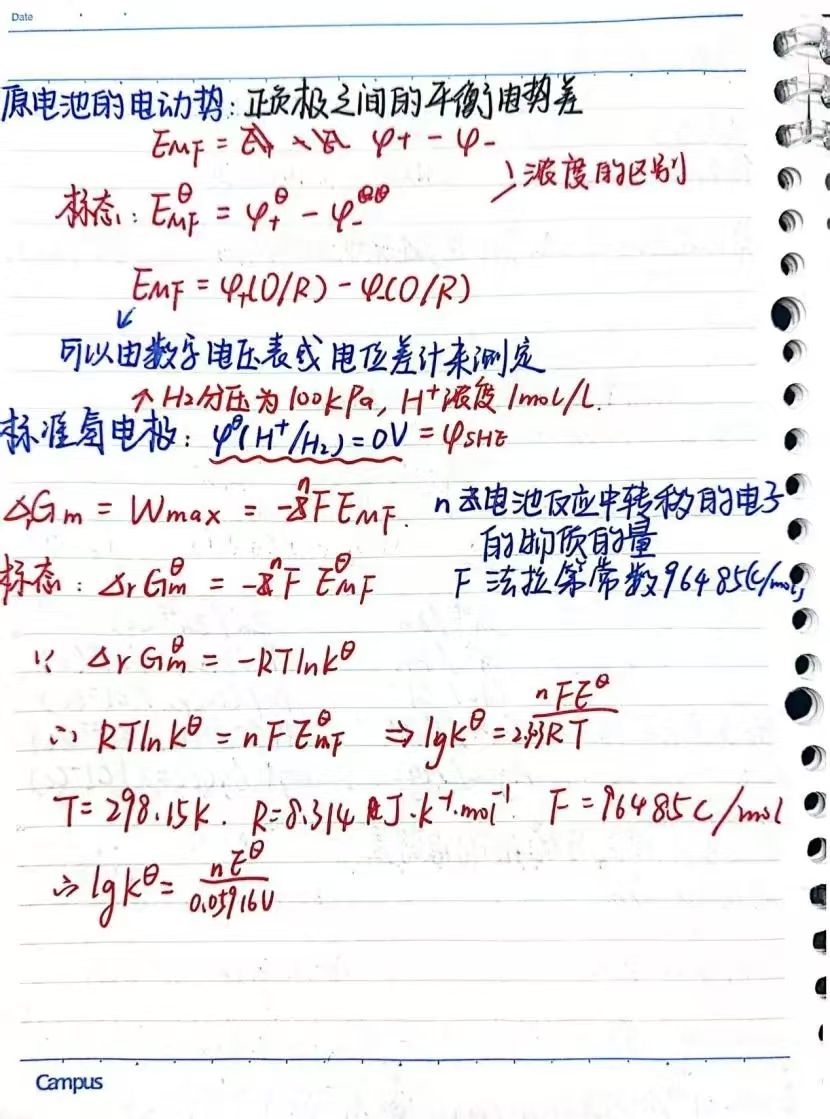 Date
原电池的电动势：正负极之间的平衡电势差
E_MF = φ+ - φ-
浓度的区别
标态：E_MF^θ = φ+^θ - φ-^θ
E_MF = φ+(O/R) - φ-(O/R)
↙
可以由数字电压表或电位差计来测定
↑ H2分压为100kPa, H+浓度1mol/L.
标准氢电极：φ^θ(H+/H2)=0V = φSHE
ΔrGm = Wmax = -nFE_MF. n 电池反应中转移的电子
的物质的量
标态：ΔrGm^θ = -nF E_MF^θ F 法拉第常数96485C/mol
∵ ΔrGm^θ = -RTlnK^θ
∴ RTlnK^θ = nFE_MF^θ ⇒ lgK^θ = nFE^θ / RT
T = 298.15K. R=8.314 J·K^-1·mol^-1. F = 96485C/mol
∴ lgK^θ = nE^θ / 0.05916V
Campus